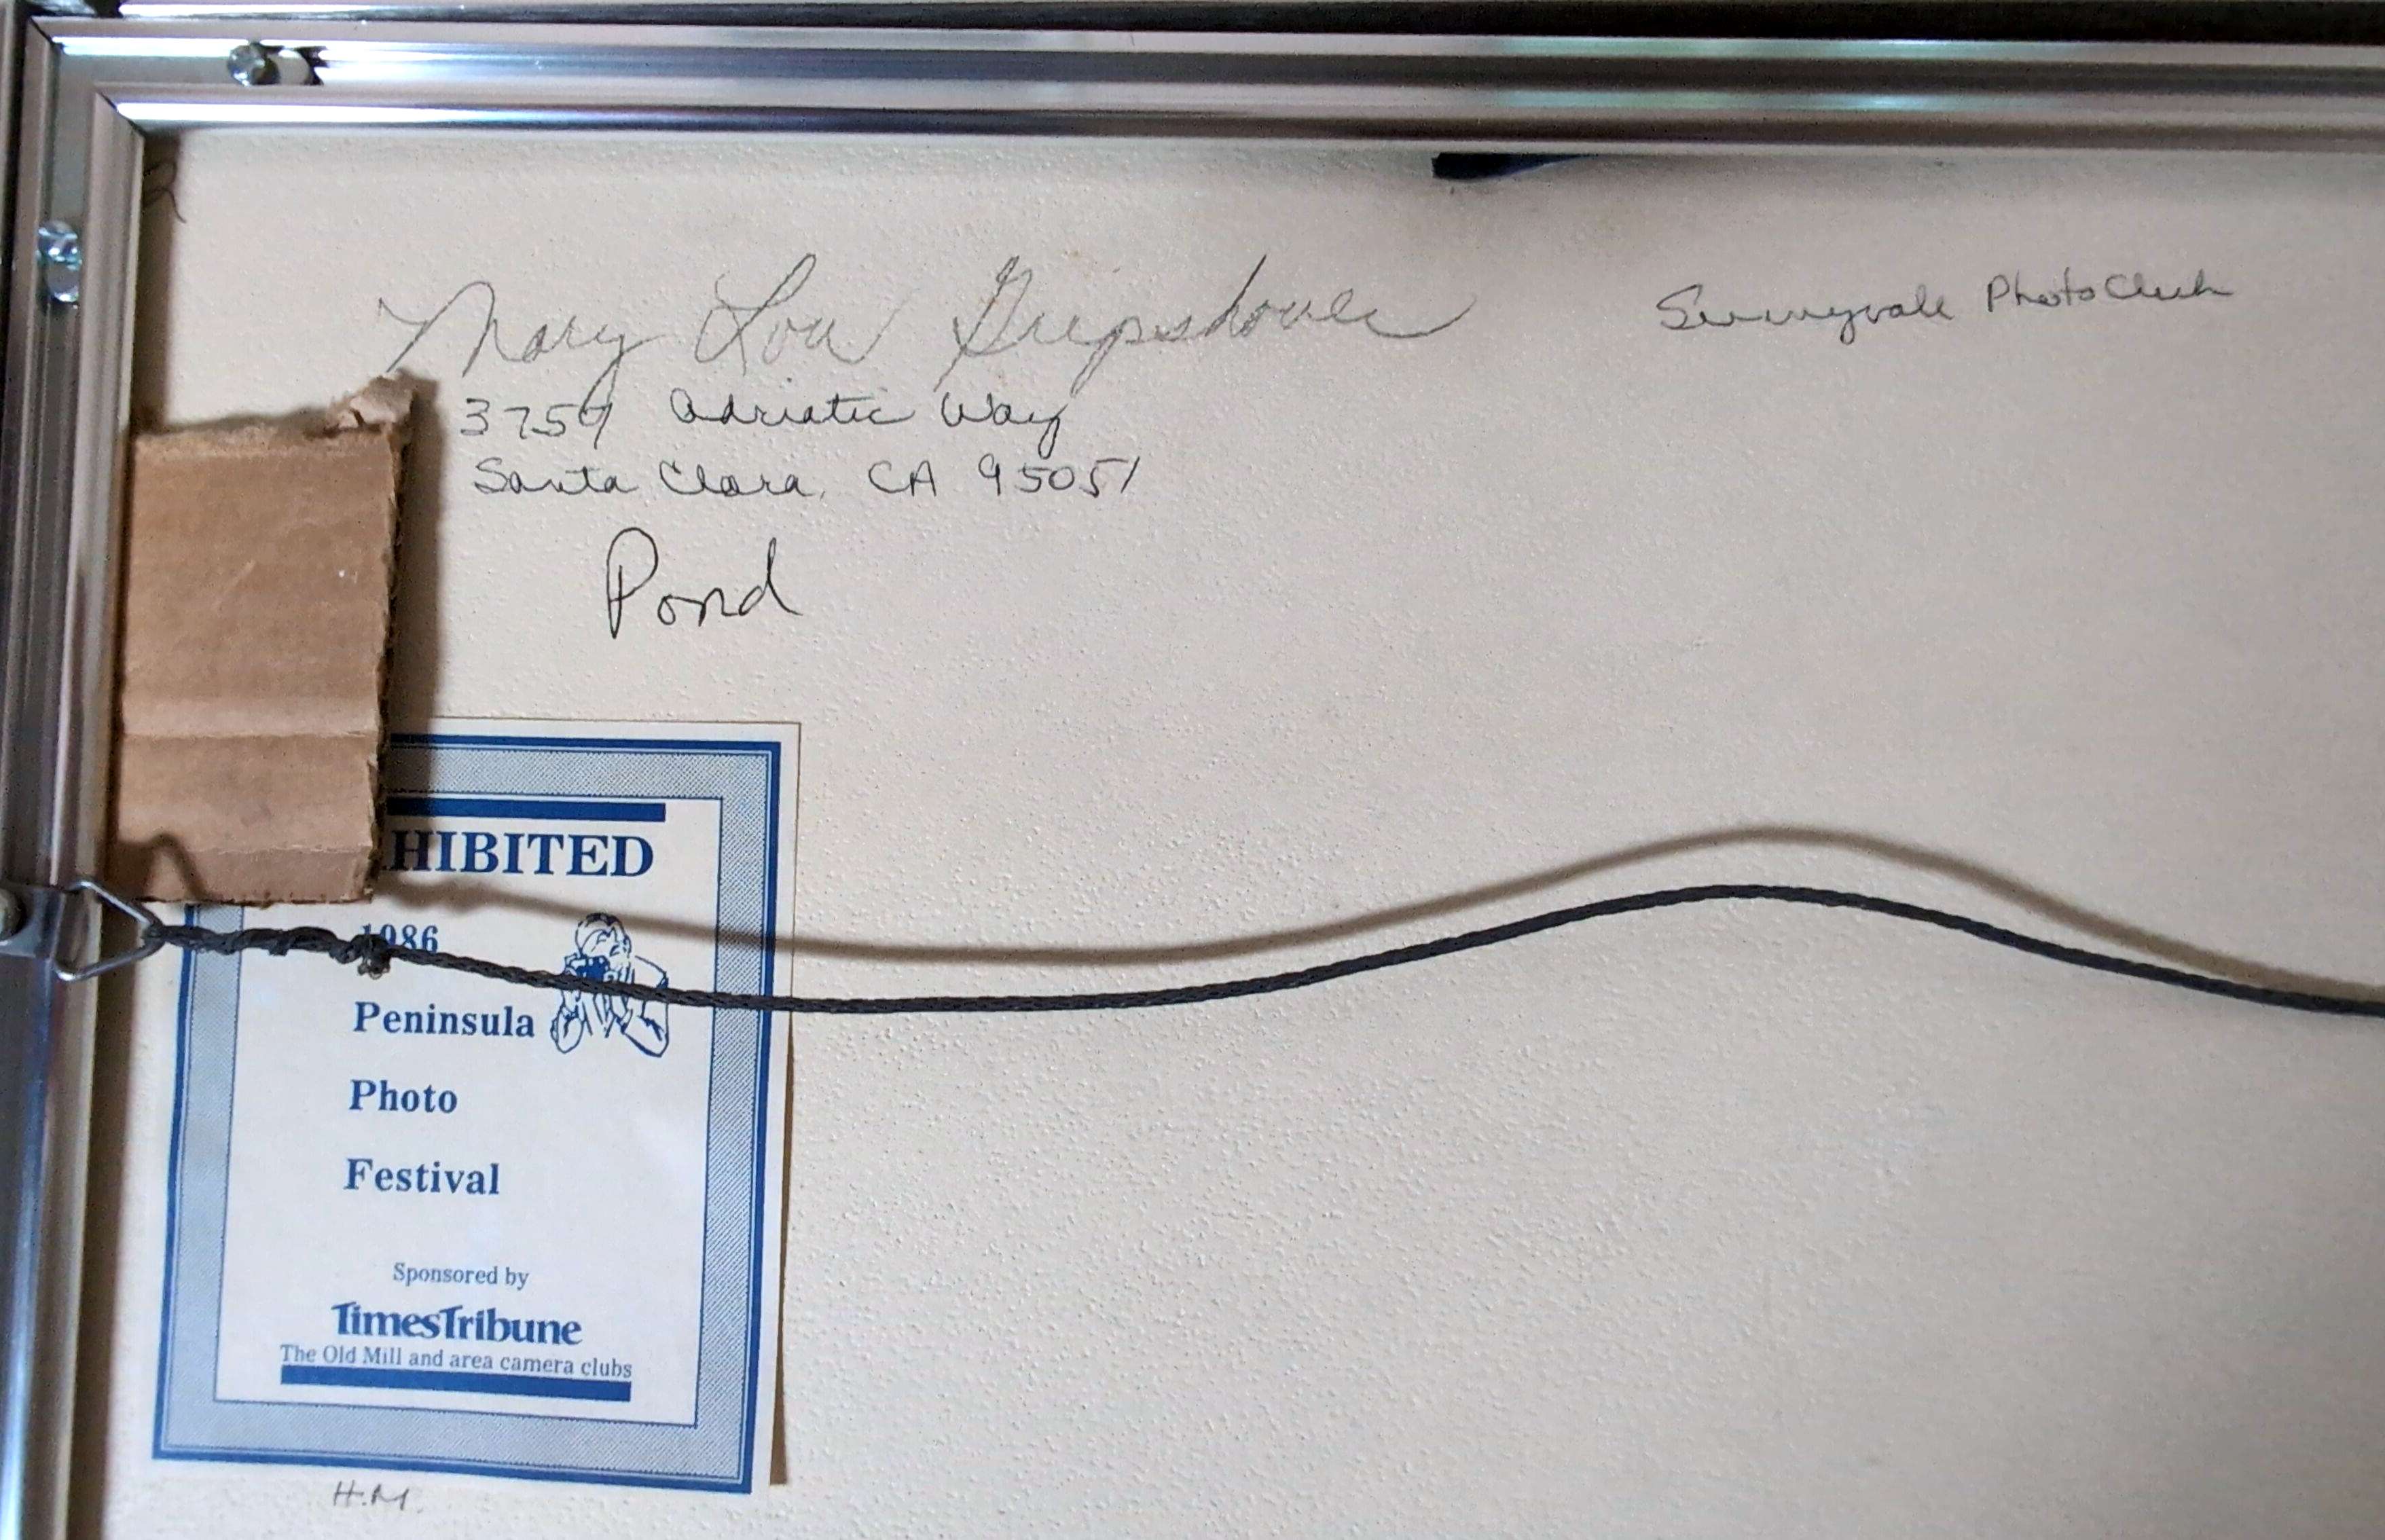 Mary Lou Gripshover
Sunnyvale Photo Club
3757 Adriatic Way
Santa Clara, CA 95051
Pond
HIBITED
1986
Peninsula
Photo
Festival
Sponsored by
TimesTribune
The Old Mill and area camera clubs
H.M.